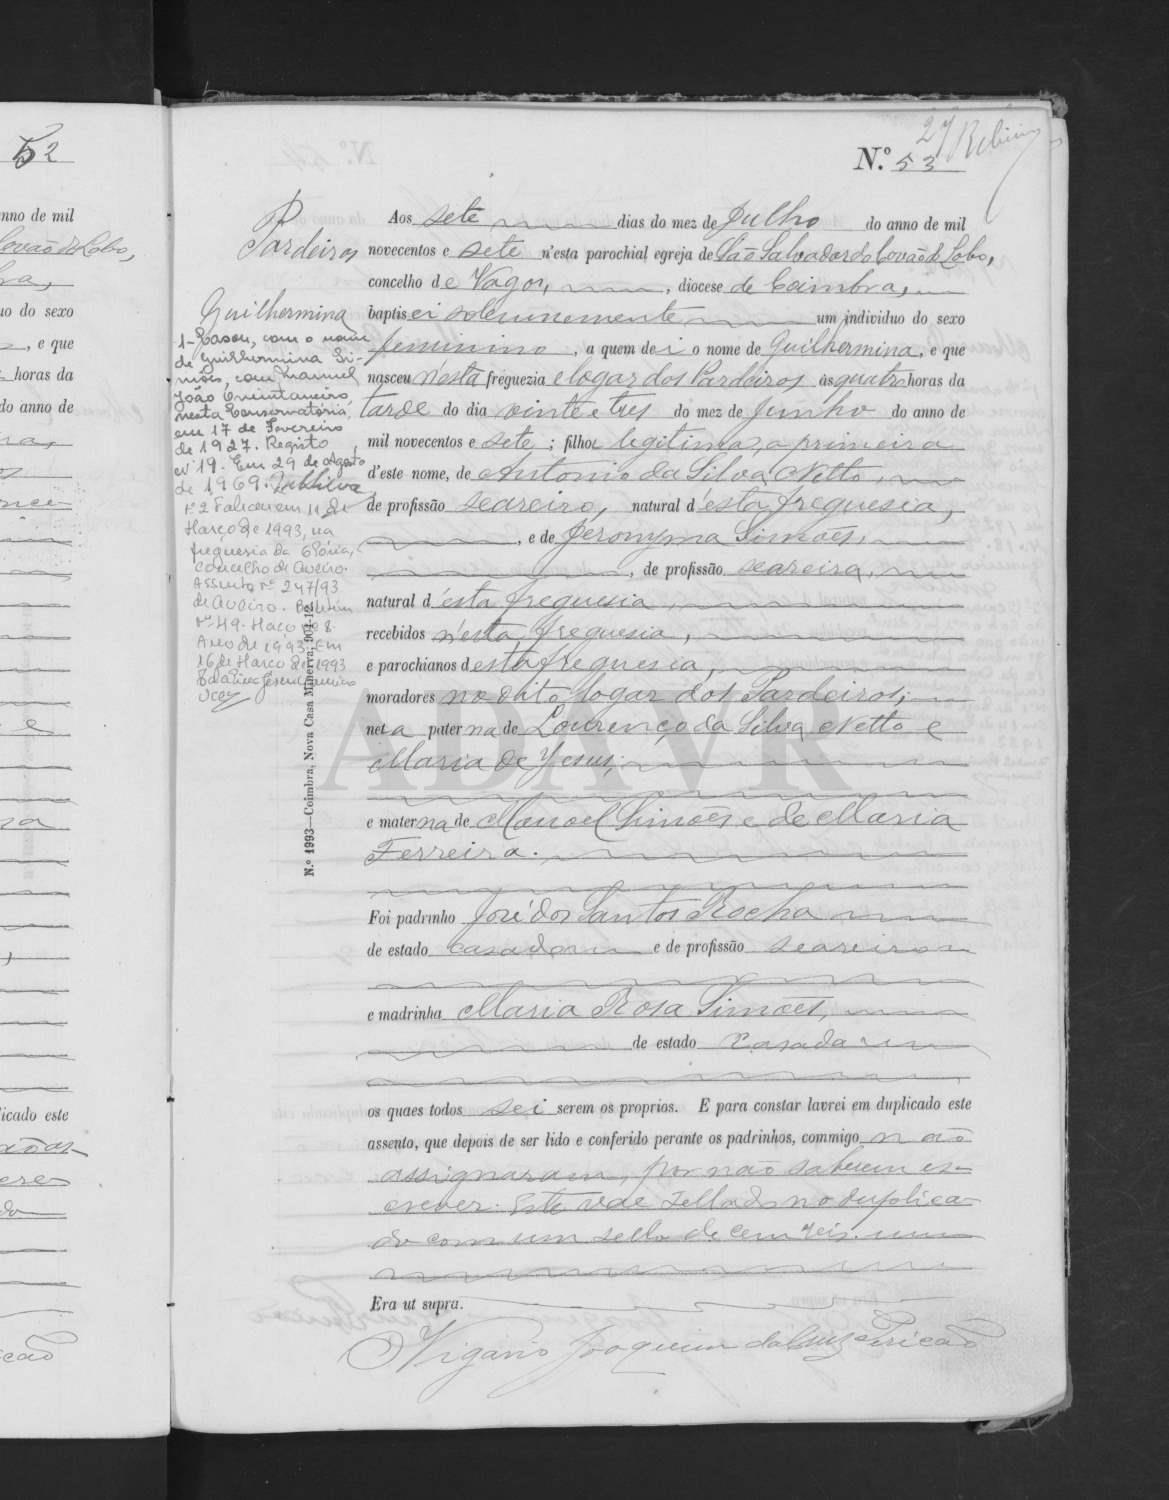 52
nno de mil
Covão do Lobo,
bra,
uo do sexo
, e que
horas da
do anno de
icado este
27
Nº 53
Pardeiros
Guilhermina
1-Casou, com o nome
de Guilhermina Si-
mões, com Manuel
João Quintaneiro,
nesta Conservatória,
em 17 de Fevereiro
de 1927. Registo
nº 19. Em 29 de Agosto
de 1969.
Nº 2 Faleceu em 11 de
Março de 1993, na
freguesia da Glória,
concelho de Aveiro.
Assento nº 247/93
de Aveiro. Boletim
nº 49. Maço nº 8.
Ano de 1993. Em
16 de Março de 1993
N.º 1993—Coimbra, Nova Casa Minerva, 904-12
Aos sete dias do mez de Julho do anno de mil
novecentos e sete n'esta parochial egreja de São Salvador do Covão do Lobo,
concelho de Vagos, , diocese de Coimbra,
baptisei solemnemente um individuo do sexo
feminino , a quem dei o nome de Guilhermina, e que
nasceu n'esta freguezia e logar dos Pardeiros ás quatro horas da
tarde do dia vinte e tres do mez de Junho do anno de
mil novecentos e sete ; filha legitima, a primeira
d'este nome, de Antonio da Silva Netto,
de profissão seareiro, natural d'esta freguesia,
, e de Jeronyma Simões,
, de profissão seareira,
natural d'esta freguesia,
recebidos n'esta freguesia,
e parochianos d'esta freguesia,
moradores no dito logar dos Pardeiros;
neta paterna de Lourenço da Silva Netto e
Maria de Jesus;
e materna de Manoel Simões e de Maria
Ferreira.
Foi padrinho José dos Santos Rocha
de estado casado e de profissão seareiro
e madrinha Maria Rosa Simões,
de estado casada
os quaes todos sei serem os proprios. E para constar lavrei em duplicado este
assento, que depois de ser lido e conferido perante os padrinhos, commigo não
assignaram, por não saberem es-
crever. Este vae sellado no duplica-
do com um sello de cem reis.
Era ut supra.
O Vigario Joaquim da Cruz Pericão
ADAVR